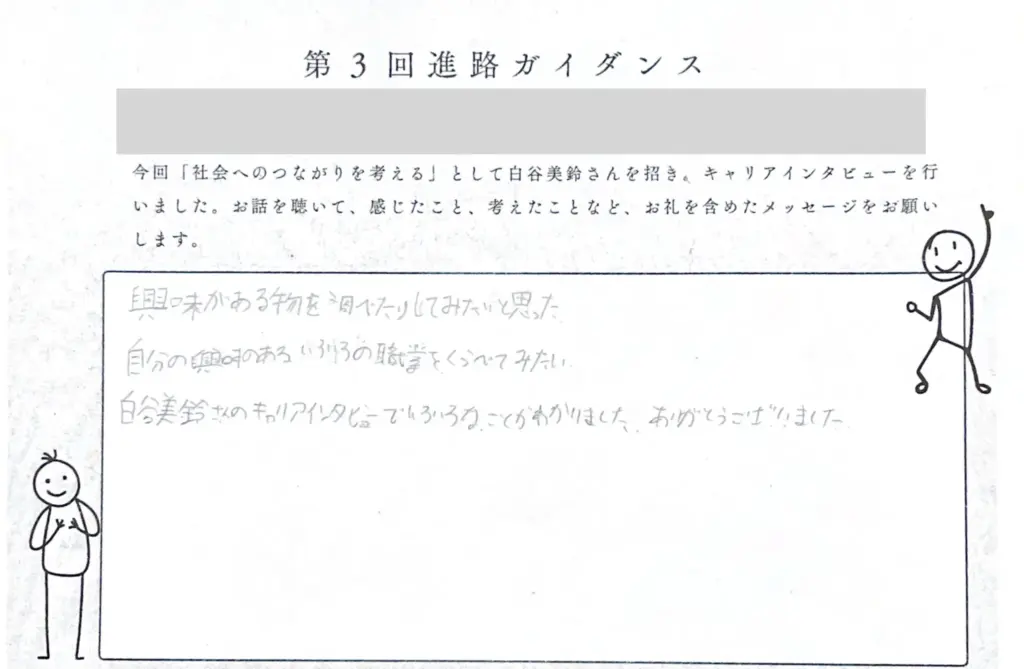 第3回進路ガイダンス
今回「社会へのつながりを考える」として白谷美鈴さんを招き、キャリアインタビューを行
いました。お話を聴いて、感じたこと、考えたことなど、お礼を含めたメッセージをお願い
します。
興味がある物を調べたりしてみたいと思った
自分の興味のあるいろいろの職業をくらべてみたい
白谷美鈴さんのキャリアインタビューでいろいろなことがわかりました、ありがとうございました